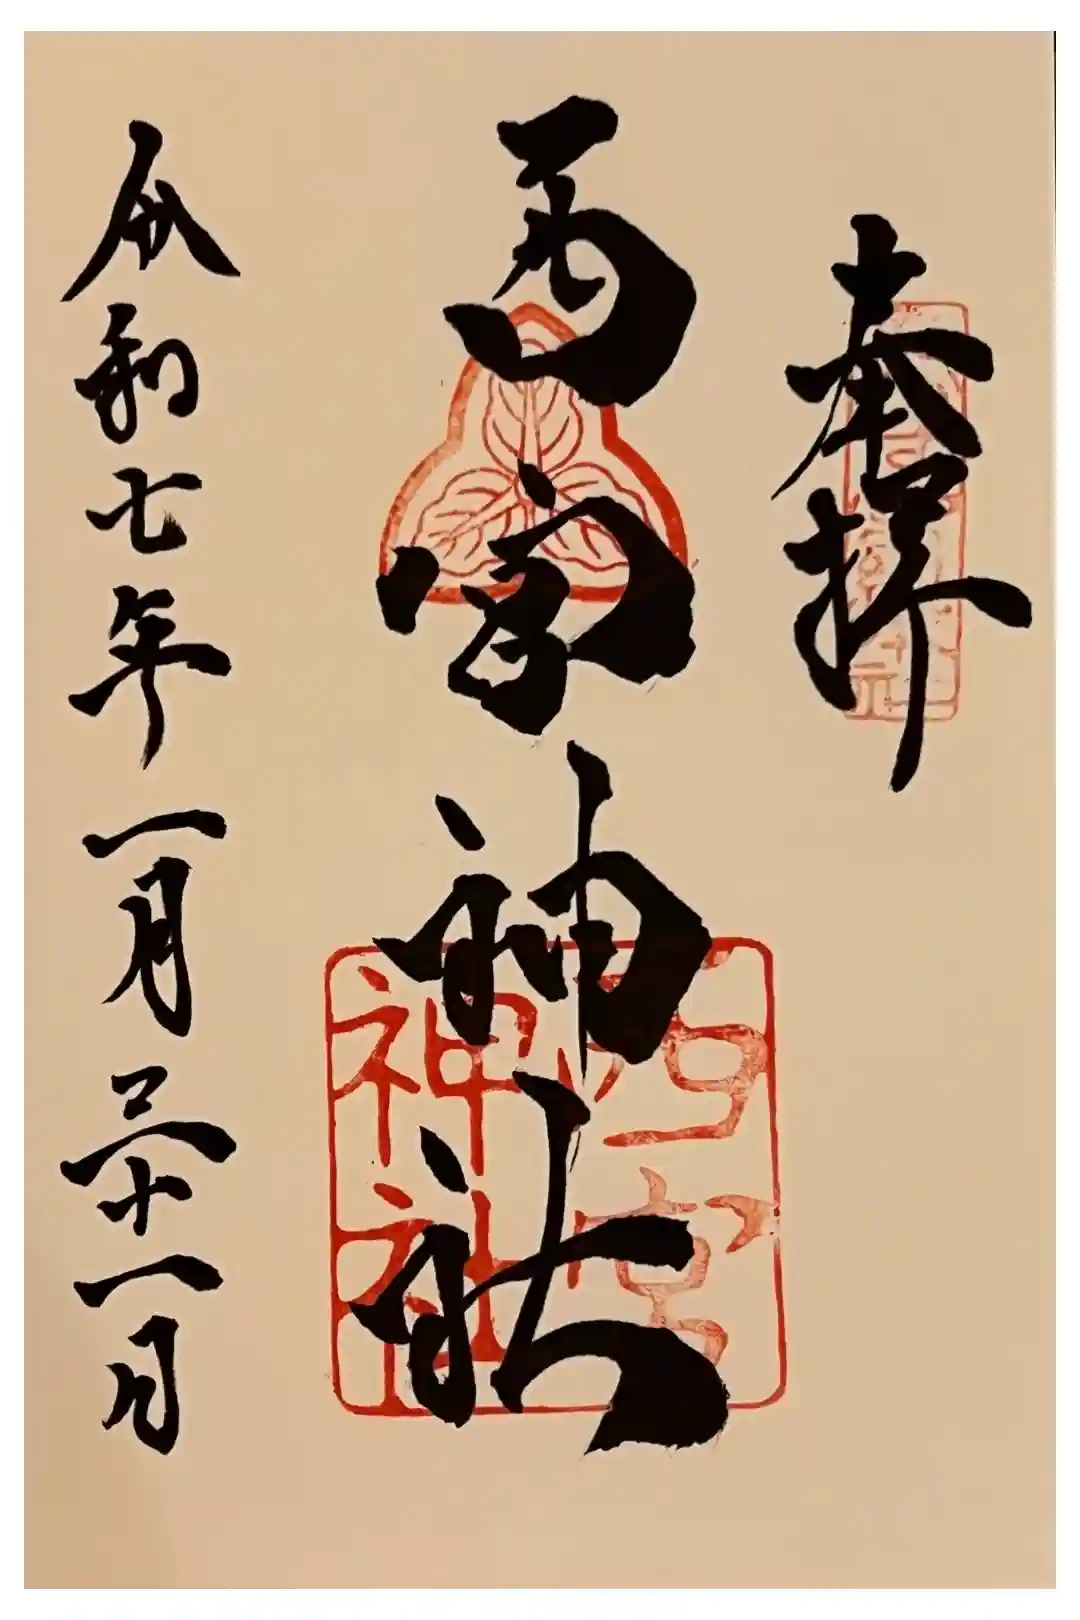 奉拝
西宮神社
令和七年一月三十一日
西宮
神社